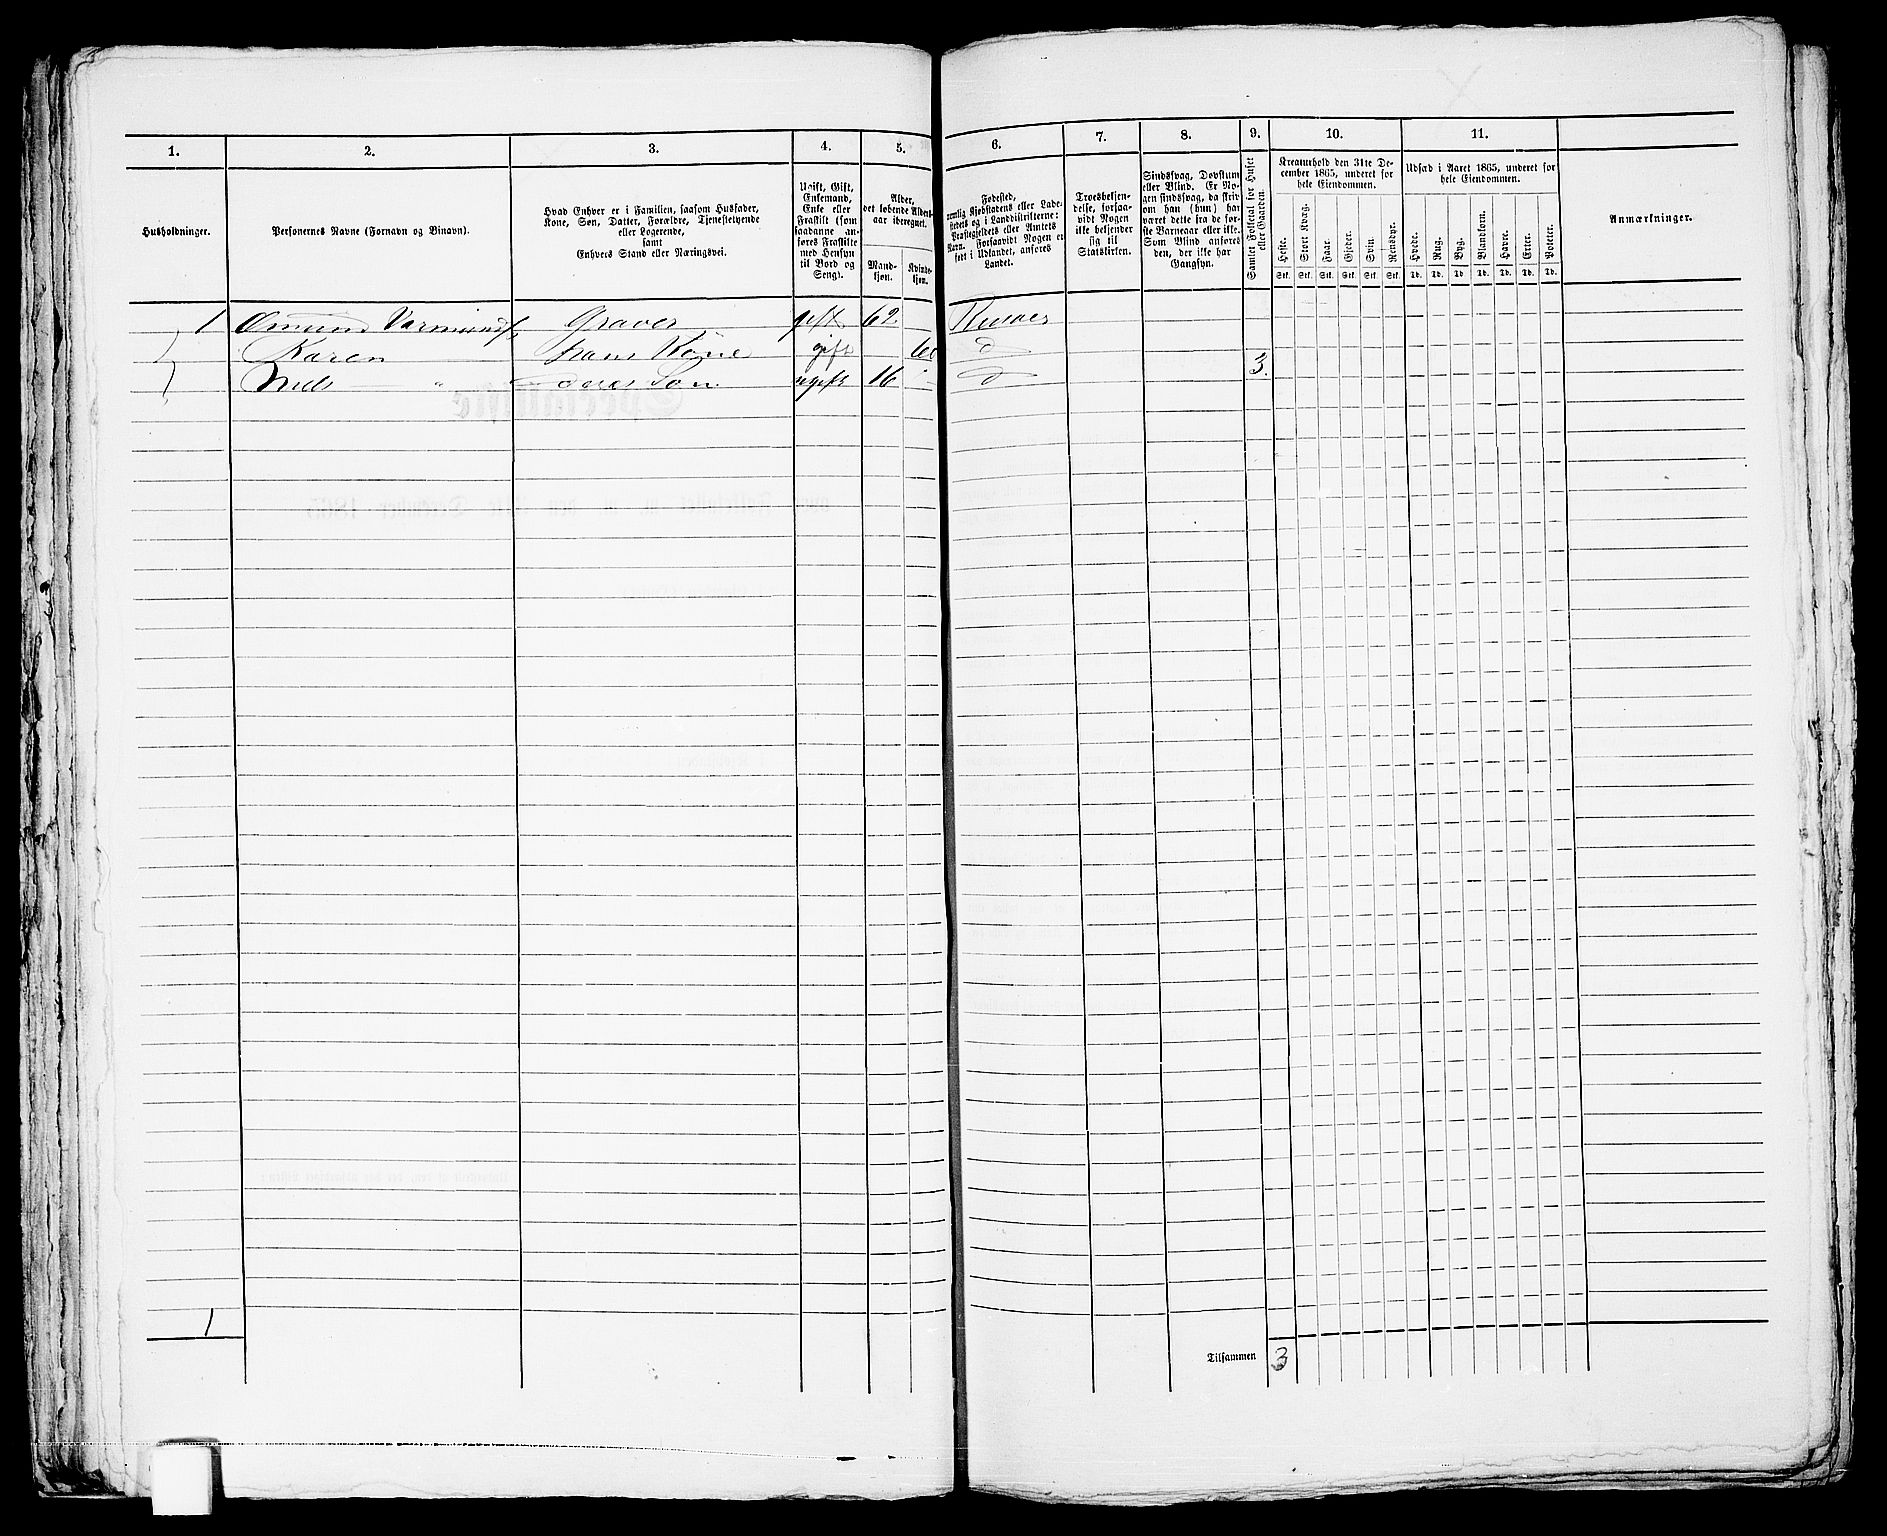 1. 2. 3. 4. 5. 6. 7. 8. 9. 10. 11.
Husholdninger.
Personernes Navne (Fornavn og Binavn).
Hvad Enhver er i Familien, saasom Husfader,
Kone, Søn, Datter, Forældre, Tjenestetyende
eller Logerende,
samt
Enhvers Stand eller Næringsvei.
Ugift, Gift,
Enkemand,
Enke eller
Fraskilt (som
saadanne an-
føres Fraskilte
med Hensyn
til Bord og
Seng).
Alder,
det løbende Alders-
aar iberegnet.
Mand-
kjøn.
Kvinde-
kjøn.
Fødested,
nemlig Kjøbstadens eller Lade-
stedets og i Landdistrikterne:
Præstegjeldets eller Amtets
Navn. Forsaavidt Nogen er
født i Udlandet, anføres
Landet.
Troesbekjen-
delse, forsaa-
vidt Nogen
ikke bekjender
sig til
Statskirken.
Sindssvag, Døvstum
eller Blind. Er No-
gen sindssvag, da skri-
ves om han (hun) har
været dette fra de før-
ste Barneaar eller ikke.
Som Blind anføres
den, der ikke har
Gangsyn.
Samlet Folketal for Huset
eller Gaarden.
Kreaturhold den 31te De-
cember 1865, underet for
hele Eiendommen.
Heste. Stort Kvæg. Faar. Gjeder. Svin. Rensdyr.
Stk. Stk. Stk. Stk. Stk. Stk.
Udsæd i Aaret 1865, underet for
hele Eiendommen.
Hvede. Rug. Byg. Blandkorn. Havre. Erter. Poteter.
Td. Td. Td. Td. Td. Td. Td.
Anmærkninger.
1 Omund Varmunds Graver gift 62
Karen hans Kone gift d
Niels " deres Søn ugift 16 d 3.
1
Tilsammen 3